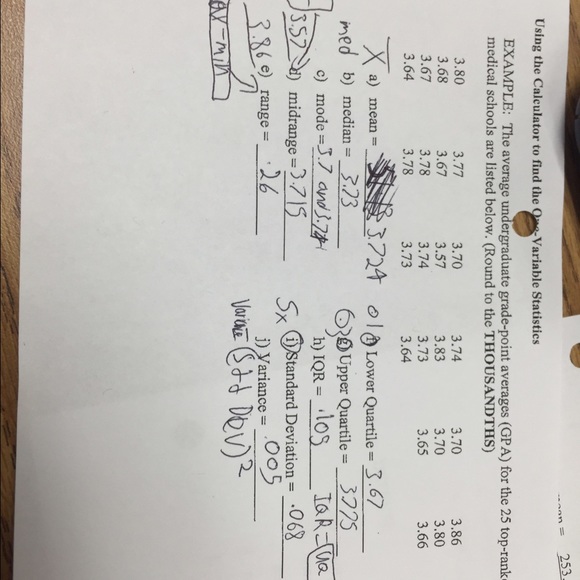 mean = 253
Using the Calculator to find the One-Variable Statistics
EXAMPLE: The average undergraduate grade-point averages (GPA) for the 25 top-rank
medical schools are listed below. (Round to the THOUSANDTHS)
3.80 3.77 3.70 3.74 3.70 3.86
3.68 3.67 3.57 3.83 3.70 3.80
3.67 3.78 3.74 3.73 3.65 3.66
3.64 3.78 3.73 3.64
X a) mean = 3.724
med b) median = 3.73
c) mode = 3.7 and 3.74
3.57 d) midrange = 3.715
3.86 e) range = .26
- min
Q1 f) Lower Quartile = 3.67
Q3 g) Upper Quartile = 3.775
h) IQR = .105 IQR =
Sx i) Standard Deviation = .068
j) Variance = .005
Variance = (Std Dev)²